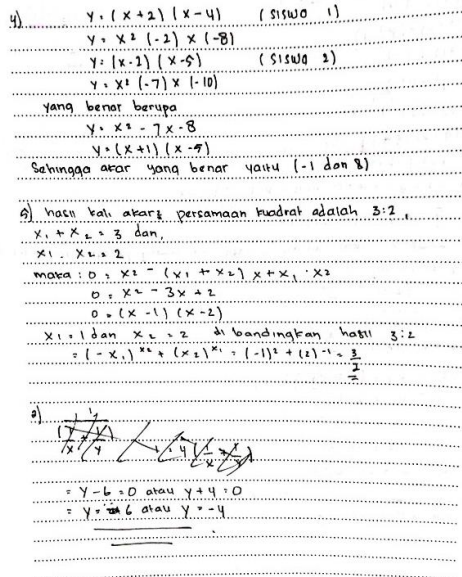 4) y = (x+2) (x-4) (siswa 1)
y = x² (-2) x (-8)
y = (x-2) (x-5) (siswa 2)
y = x² (-7) x (-10)
yang benar berupa
y = x² - 7x - 8
y = (x+1) (x-5)
Sehingga akar yang benar yaitu (-1 dan 8)
5) hasil kali akar² persamaan kuadrat adalah 3:2,
x₁ + x₂ = 3 dan,
x₁ . x₂ = 2
maka : 0 = x² - (x₁ + x₂) x + x₁ . x₂
0 = x² - 3x + 2
0 = (x -1) (x-2)
x₁ = 1 dan x₂ = 2 di bandingkan hasil 3:2
= (-x₁)^x₂ + (x₂)^x₁ = (-1)² + (2)⁻¹ = 3/2
= y-6 = 0 atau y+4 = 0
= y = 6 atau y = -4